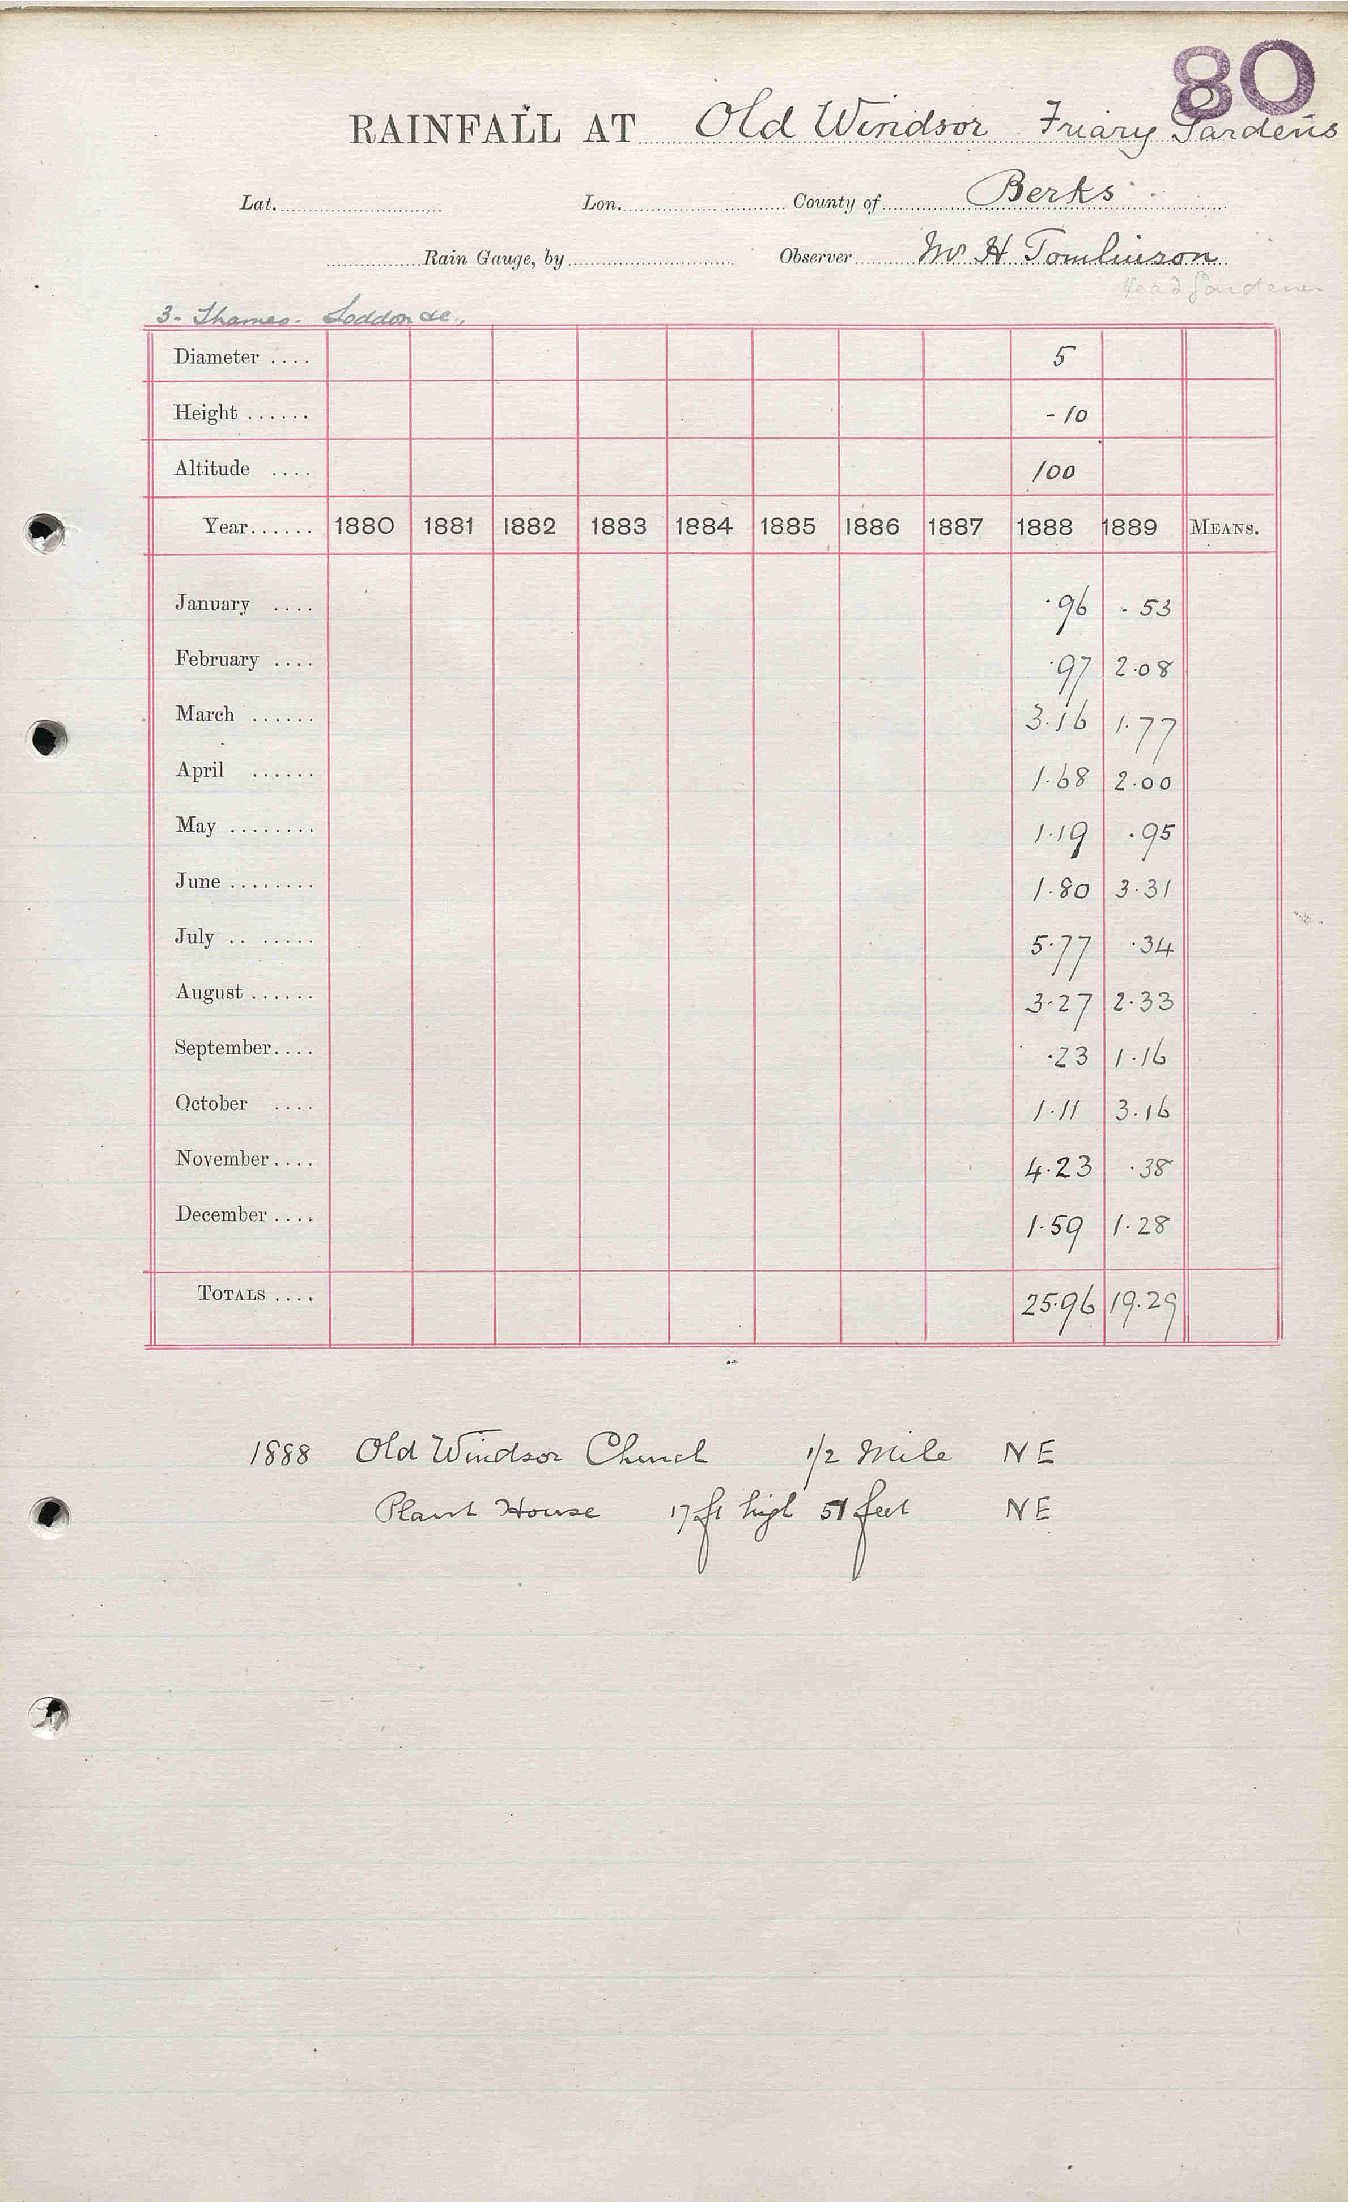 80
RAINFALL AT Old Windsor Friary Gardens
Lat. Lon. County of Berks
Rain Gauge, by Observer Mr H Tomlinson
Head Gardener
3. Thames. Loddon &c.,
Diameter .... 5
Height ...... -10
Altitude .... 100
Year...... 1880 1881 1882 1883 1884 1885 1886 1887 1888 1889 MEANS.
January .... .96 .53
February .... .97 2.08
March ...... 3.16 1.77
April ...... 1.68 2.00
May ........ 1.19 .95
June ........ 1.80 3.31
July .. ...... 5.77 .34
August ...... 3.27 2.33
September.... .23 1.16
October .... 1.11 3.16
November.... 4.23 .38
December .... 1.59 1.28
TOTALS .... 25.96 19.29
1888 Old Windsor Church 1/2 Mile NE
Plant House 17 ft high 51 feet NE